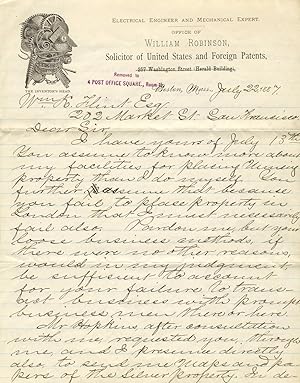 ELECTRICAL ENGINEER AND MECHANICAL EXPERT.
OFFICE OF
WILLIAM ROBINSON,
Solicitor of United States and Foreign Patents,
257 Washington Street (Herald Building),
Removed to
4 POST OFFICE SQUARE, Room
THE INVENTOR'S HEAD
Boston, Mass. July 22 1887
Wm. H. Flint Esq
202 Market St. San Francisco
Dear Sir,
I have yours of July 13th.
You assume to know more about
my facilities for placing mining
property than I do myself. You
further assume that because
you fail to place property in
London that I must necessarily
fail also. Pardon me, but your
loose business methods, if
there were no other reasons,
would in my judgment
be sufficient to account
for your failure to trans-
act business with prompt
business men there or here.
Mr Hopkins, after consultation
with me, requested you, through
me, and I presume directly
also, to send me maps and pa-
pers of the silver property. I